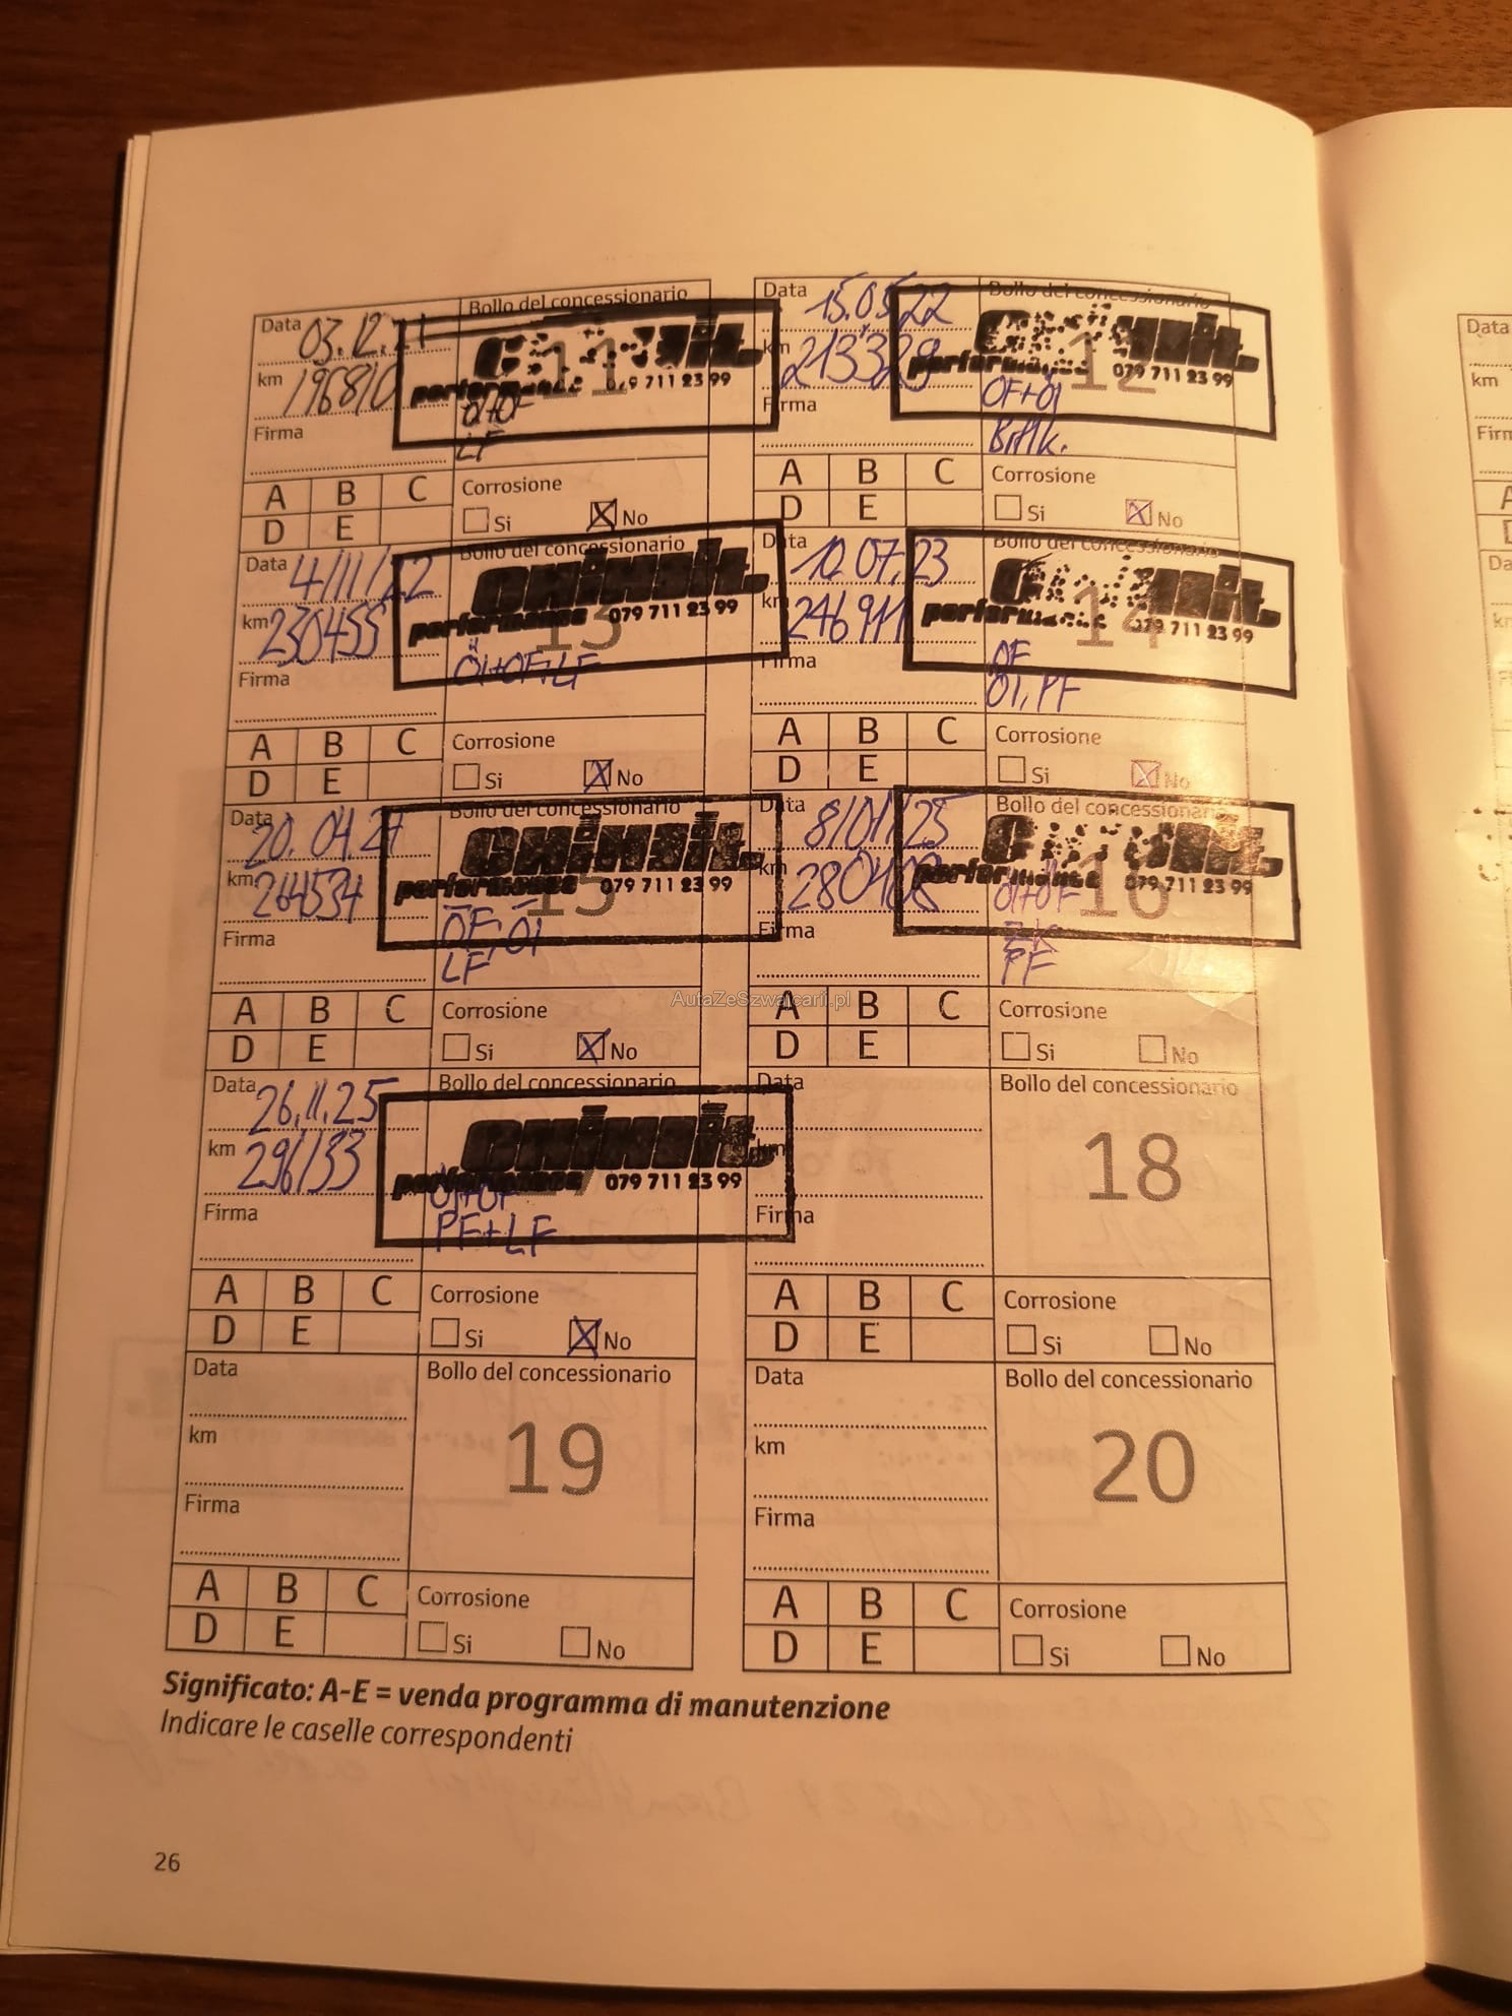 Data 03.12.21
Bollo del concessionario
km 196810
11
performance 079 711 23 99
Firma
Öl+ÖF
LF
A B C
Corrosione
D E
Si No
Data 15.05.22
Bollo del concessionario
km 213329
12
performance 079 711 23 99
Firma
ÖF+Öl
A B C
Corrosione
D E
Si No
Data 4/11/22
Bollo del concessionario
km 230455
13
performance 079 711 23 99
Firma
Öl+ÖF+LF
A B C
Corrosione
D E
Si No
Data 10.07.23
Bollo del concessionario
km 246911
14
performance 079 711 23 99
Firma
ÖF
Öl, PF
A B C
Corrosione
D E
Si No
Data 20.04.24
Bollo del concessionario
km 264534
15
performance 079 711 23 99
Firma
ÖF, Öl
LF
A B C
Corrosione
D E
Si No
Data 8/01/25
Bollo del concessionario
km 280408
16
performance 079 711 23 99
Firma
Öl+ÖF
ZK
PF
A B C
Corrosione
D E
Si No
AutaZeSzwajcarii.pl
Data 26.11.25
Bollo del concessionario
km 296133
performance 079 711 23 99
Firma
Öl+ÖF
PF+LF
A B C
Corrosione
D E
Si No
Data
Bollo del concessionario
km
18
Firma
A B C
Corrosione
D E
Si No
Data
Bollo del concessionario
km
19
Firma
A B C
Corrosione
D E
Si No
Data
Bollo del concessionario
km
20
Firma
A B C
Corrosione
D E
Si No
Significato: A-E = venda programma di manutenzione
Indicare le caselle correspondenti
26
Data
km